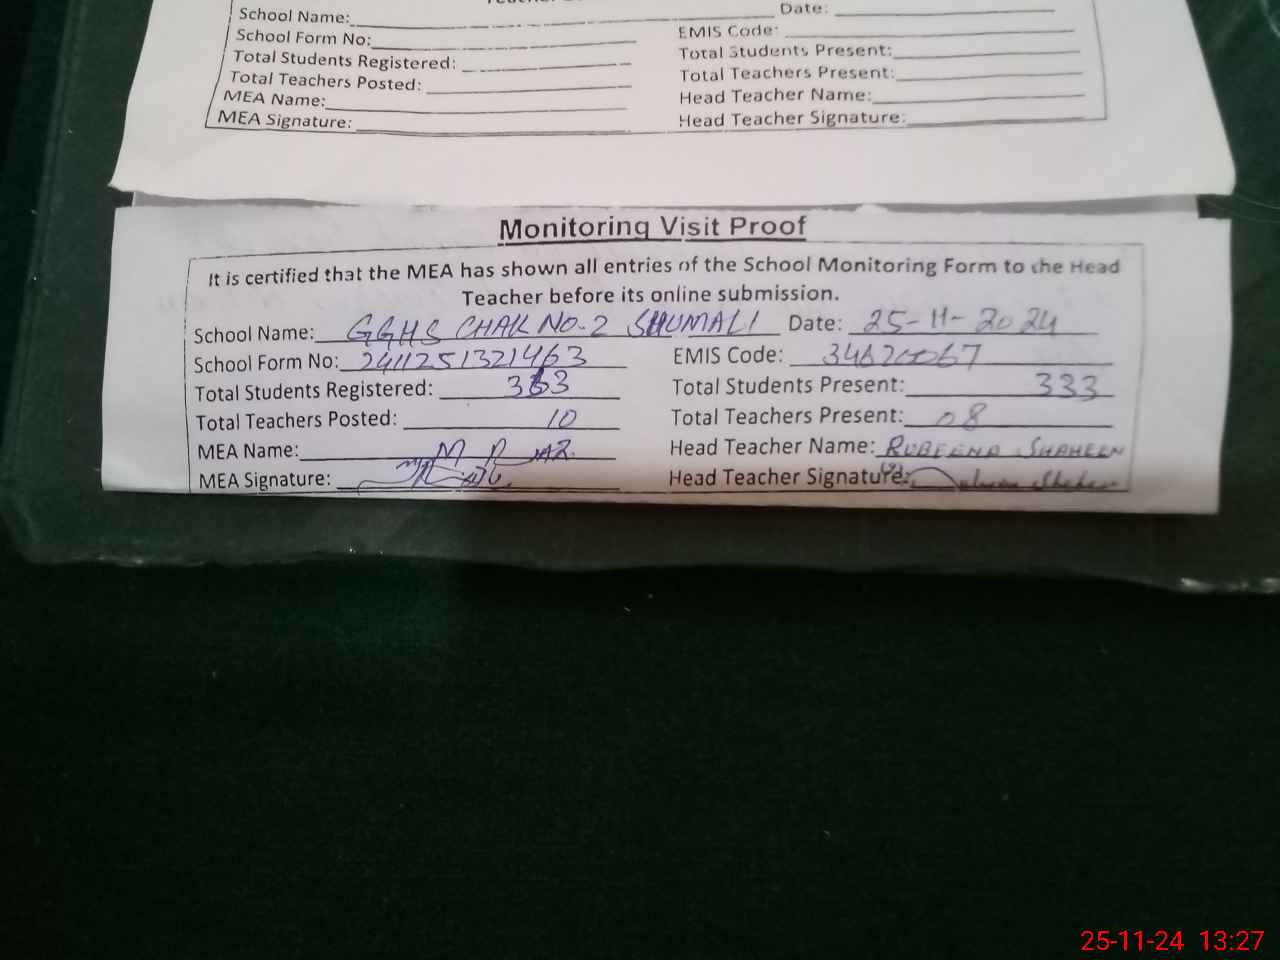 School Name: Date:
School Form No: EMIS Code:
Total Students Registered: Total Students Present:
Total Teachers Posted: Total Teachers Present:
MEA Name: Head Teacher Name:
MEA Signature: Head Teacher Signature:
Monitoring Visit Proof
It is certified that the MEA has shown all entries of the School Monitoring Form to the Head
Teacher before its online submission.
School Name: GGHS CHAK NO.2 SHUMALI Date: 25-11-2024
School Form No: 2411251321463 EMIS Code: 34620067
Total Students Registered: Total Students Present: 333
Total Teachers Posted: 10 Total Teachers Present: 08
MEA Name: M Head Teacher Name: RUBEENA SHAHEEN
MEA Signature: Head Teacher Signature: Shaheen
25-11-24 13:27